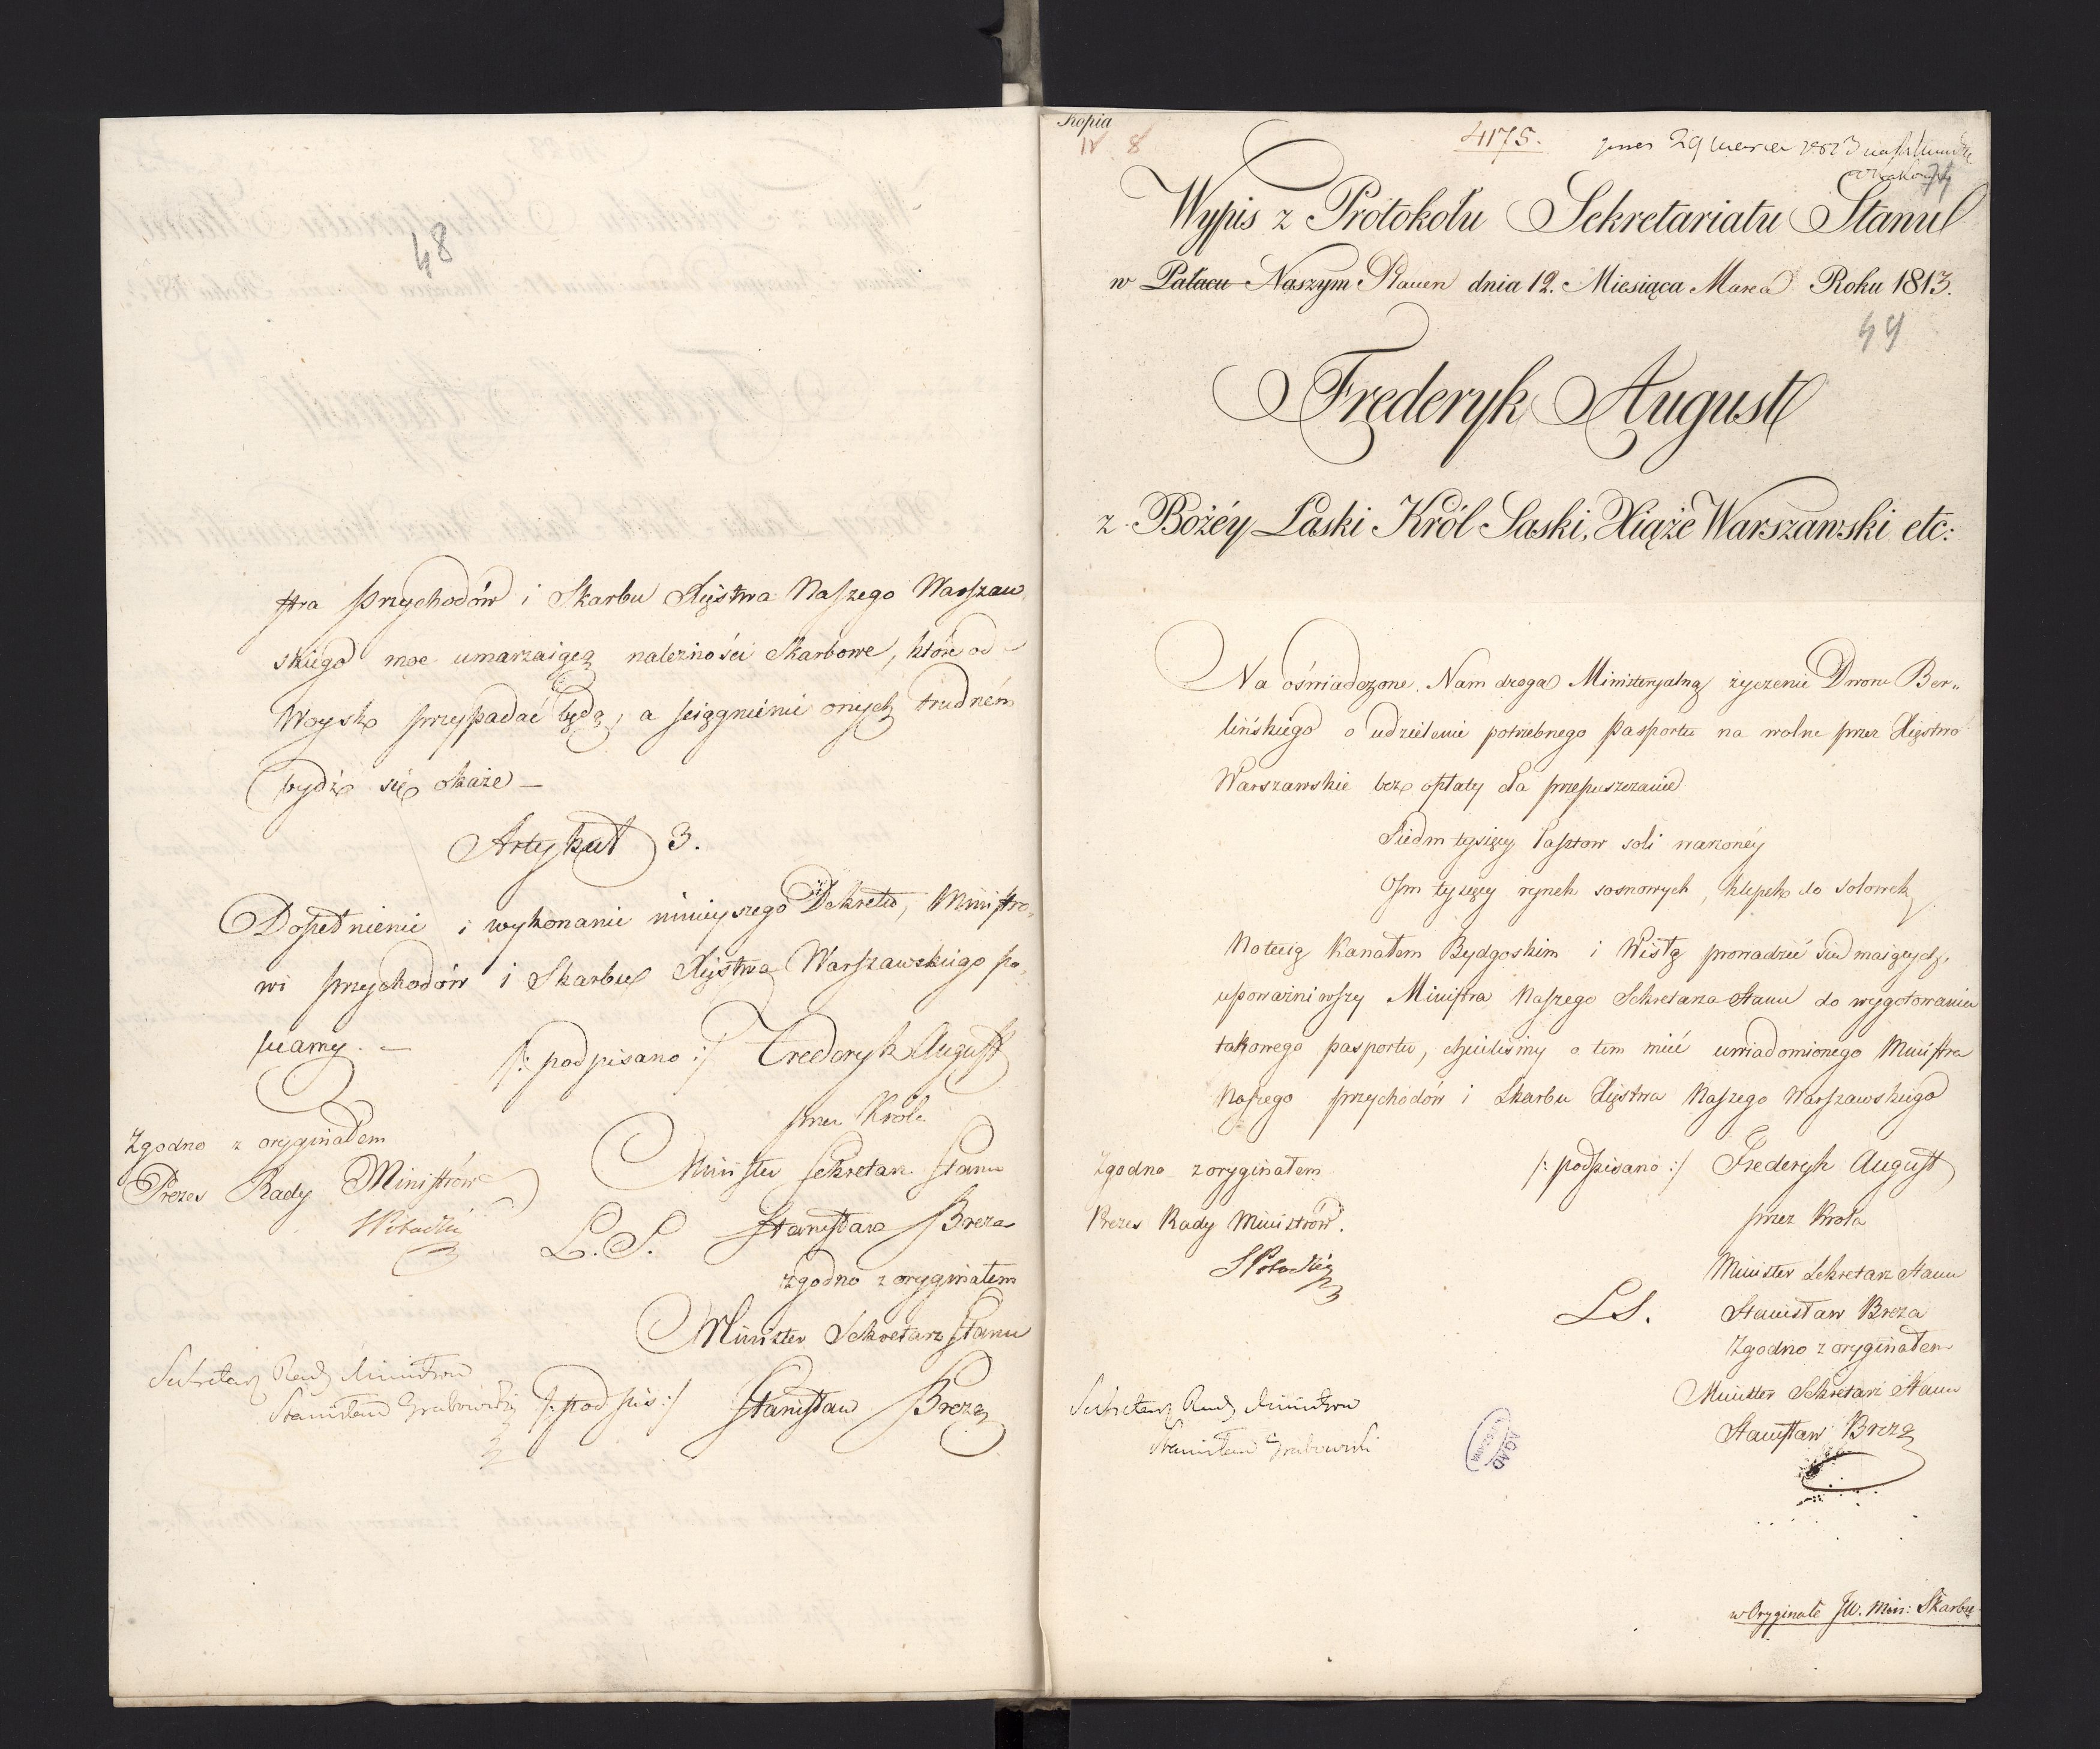 48
stra Przychodów i Skarbu Xięstwa Naszego Warszaw
skiego moc umarzaiącą należności Skarbowe, które od
Woysk przypadać będą, a sciągnienie onych trudném
bydź się okaże —
Artykuł 3.
Dopełnienie i wykonanie ninieyszego Dekretu, Ministro„
wi Przychodów i Skarbu Xięstwa Warszawskiego po„
lecamy. —
/: podpisano :/ Frederyk August
przez Króla
Minister Sekretarz Stanu
L. S. Stanisław Breza
zgodno z oryginałem
Minister Sekretarz Stanu
/: podpis :/ Stanisław Breza
Zgodno z oryginałem
Prezes Rady Ministrów
S Potocki
Sekretarz Rady Ministrow
Stanisław Grabowski
Kopia
IV 8
4175.
29 1813
74
Wypis z Protokołu Sekretariatu Stanu
w Pałacu Naszym Plauen dnia 12. Miesiąca Marca Roku 1813.
49
Frederyk August
z Bożéy Łaski Król Saski, Xiąże Warszawski etc:
Na oświadczone Nam drogą Ministeryalną życzenie Dworu Ber„
lińskiego o udzielenie potrzebnego Pasportu na wolne przez Xięstwo
Warszawskie bez opłaty cła przepuszczanie
Siedm tysięcy łasztow soli warzonéy
Osm tysięcy rynek sosnowych, klepek do solowek
Notecią Kanałem Bydgoskim i Wisłą prowadzić się maiących,
upoważniwszy Ministra Naszego Sekretarza Stanu do wygotowania
takowego pasportu, chcieliśmy o tem mieć uwiadomionego Ministra
Naszego przychodów i Skarbu Xięstwa Naszego Warszawskiego
/: podpisano :/ Frederyk August
przez Krola
Minister Sekretarz Stanu
LS. Stanisław Breza
Zgodno z oryginałem
Minister Sekretarz Stanu
Stanisław Breza
Zgodno z oryginałem
Prezes Rady Ministrów.
S Potocki
Sekretarz Rady Ministrow
Stanisław Grabowski
AGAD
WARSZAWA
w Oryginale JW. Min: Skarbu